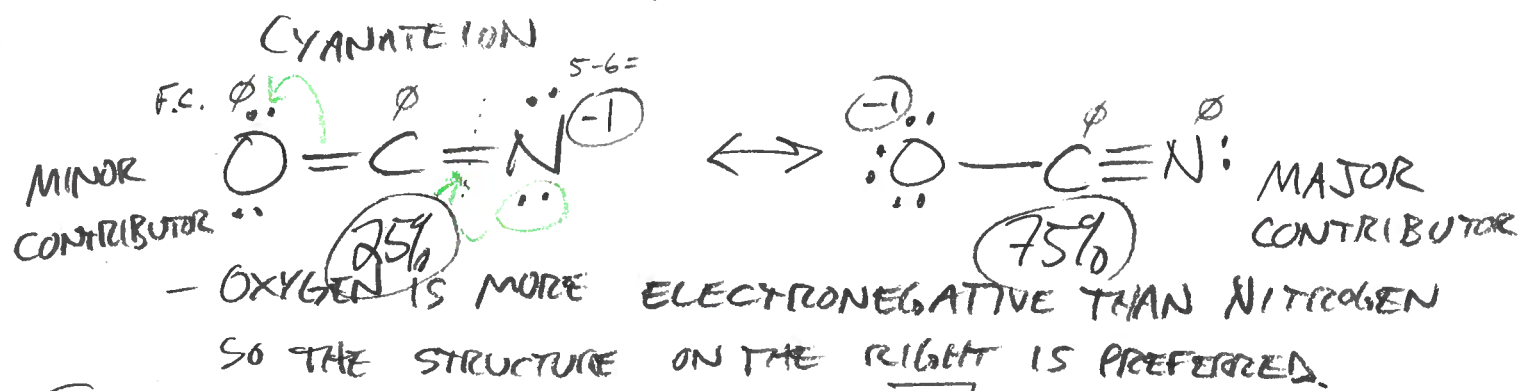 CYANATE ION
F.C. Ø Ø 5-6= -1
O=C=N ↔ O-C≡N:
-1 Ø Ø
MINOR CONTRIBUTOR
MAJOR CONTRIBUTOR
25% 75%
- OXYGEN IS MORE ELECTRONEGATIVE THAN NITROGEN
SO THE STRUCTURE ON THE RIGHT IS PREFERRED.